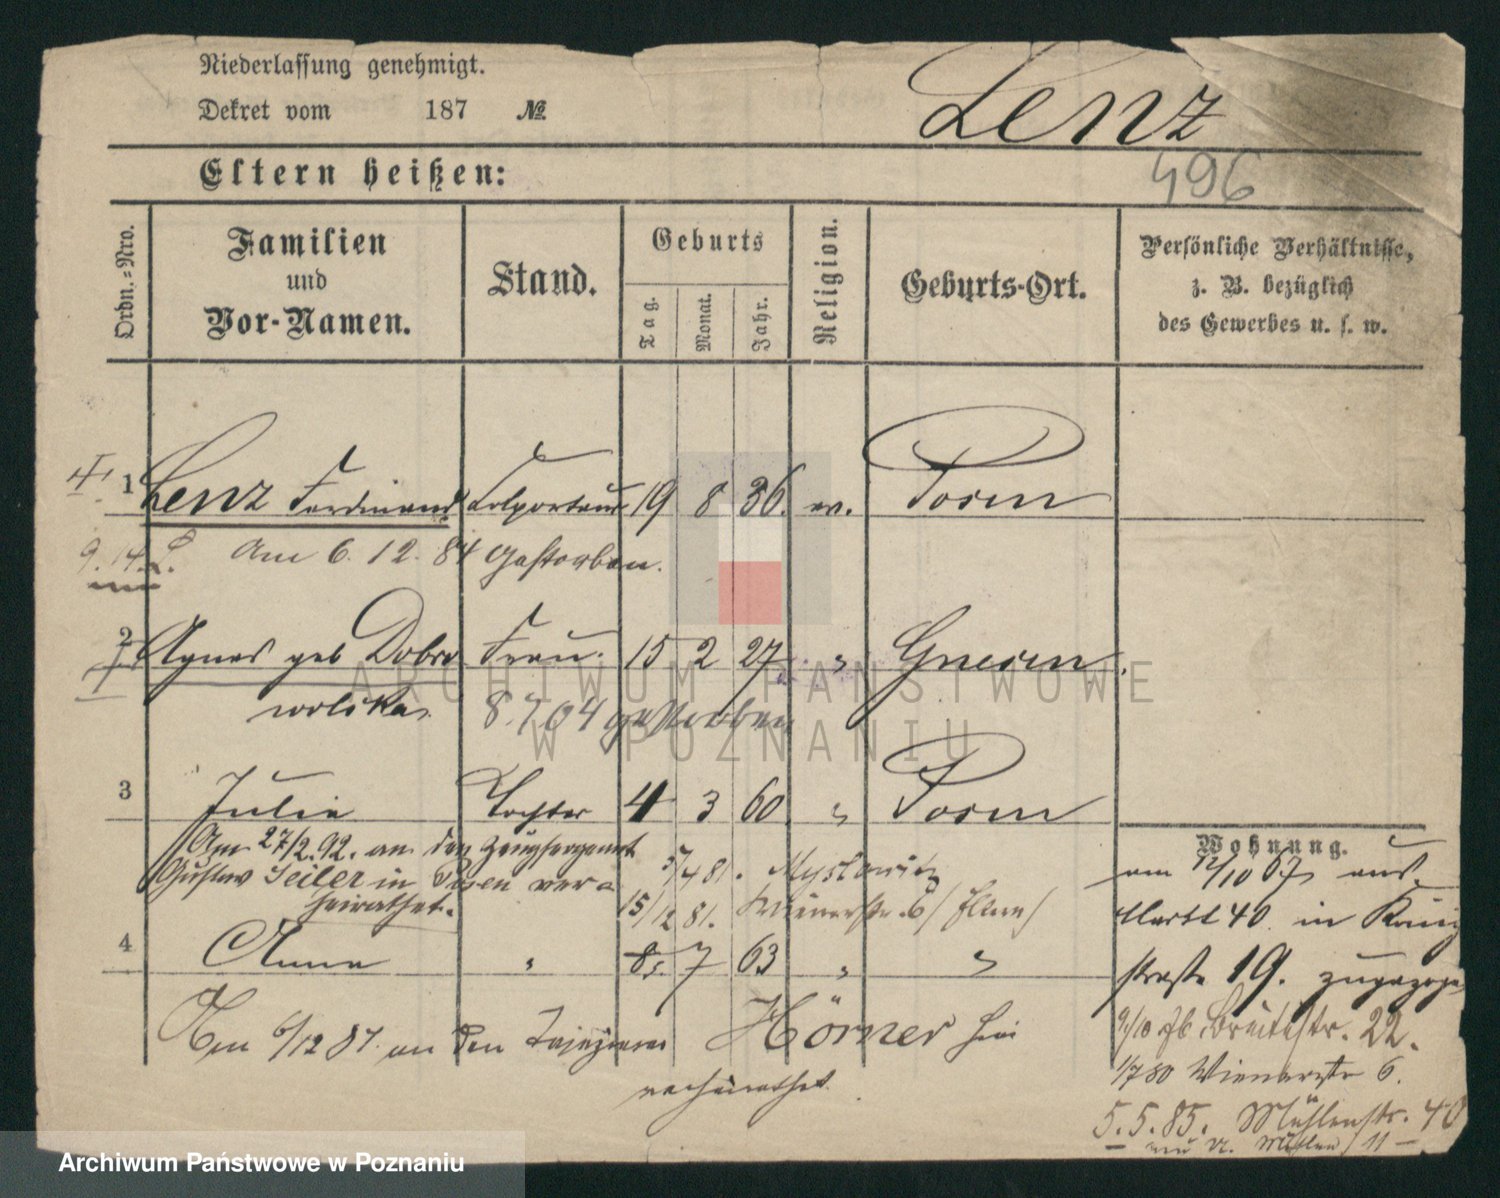 Niederlassung genehmigt.
Dekret vom 187 №
Lenz
496
Eltern heißen:
Ordn.=Nro.
Familien
und
Vor-Namen.
Stand.
Geburts
Tag.
Monat.
Jahr.
Religion.
Geburts-Ort.
Persönliche Verhältnisse,
z. B. bezüglich
des Gewerbes u. s. w.
1 Lenz Ferdinand Colporteur 19 8 36. ev. Posen
Am 6. 12. 84 gestorben.
2 Agnes geb Dobro Frau. 15 2 27 " Gnesen
wolska. 8.7.04 gestorben
3 Julie Tochter 4 3 60 " Posen
Am 27/2.92. an den Zeugsergeant
Gustav Seiler in Posen ver=
heirathet.
4 81. Myslowitz
15/12 81. Wienerstr. 6
4 Anna " 8. 7 63 " "
Am 6/12 87 an den Hörner hier
verheirathet.
Wohnung.
am 12/10 67 aus
Markt 40 in König
straße 19. zugezogen
9/10 Breitestr. 22.
1/7 80 Wienerstr 6.
5.5.85. Mühlenstr. 40
ARCHIWUM PAŃSTWOWE
W POZNANIU
Archiwum Państwowe w Poznaniu